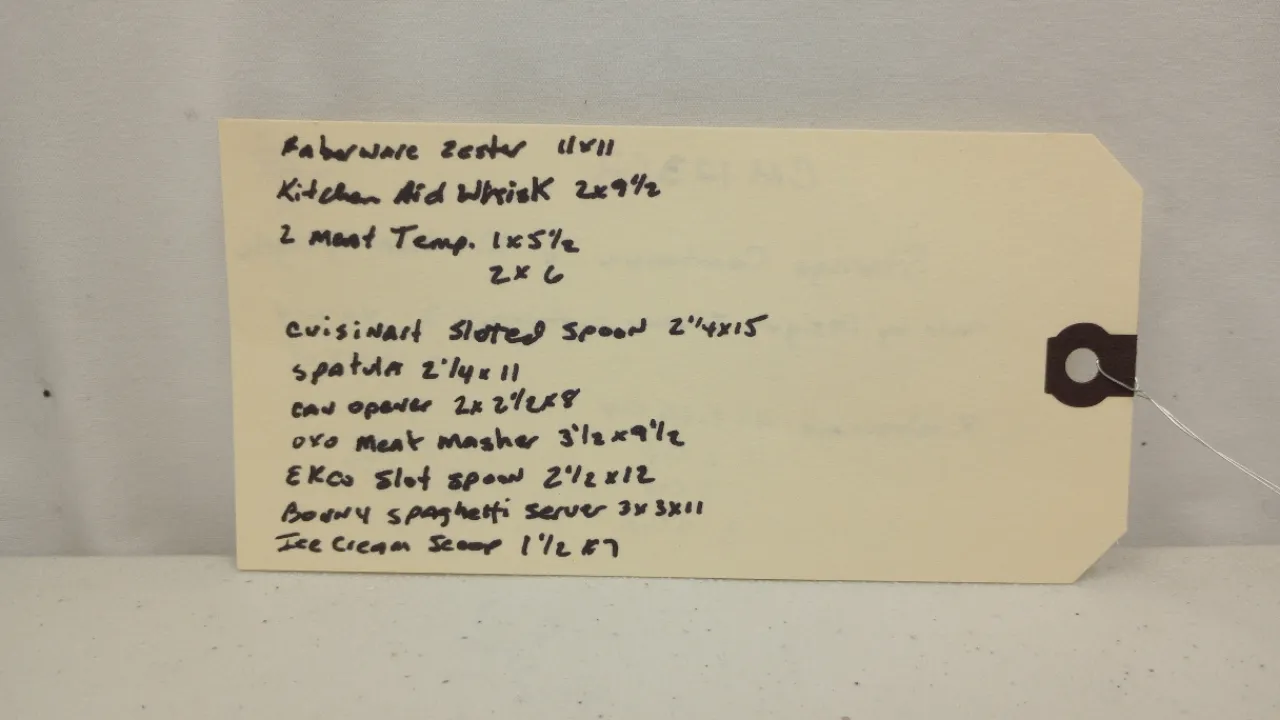 Faberware Zester 11x11
Kitchen Aid Whisk 2x9 1/2
2 Meat Temp. 1x5 1/2
2x6
Cuisinart Sloted Spoon 2 1/4x15
Spatula 2 1/4x11
can opener 2x2 1/2x8
oxo Meat Masher 3 1/2x9 1/2
EKco Slot spoon 2 1/2x12
Bonny spaghetti server 3x3x11
Ice Cream Scoop 1 1/2x7